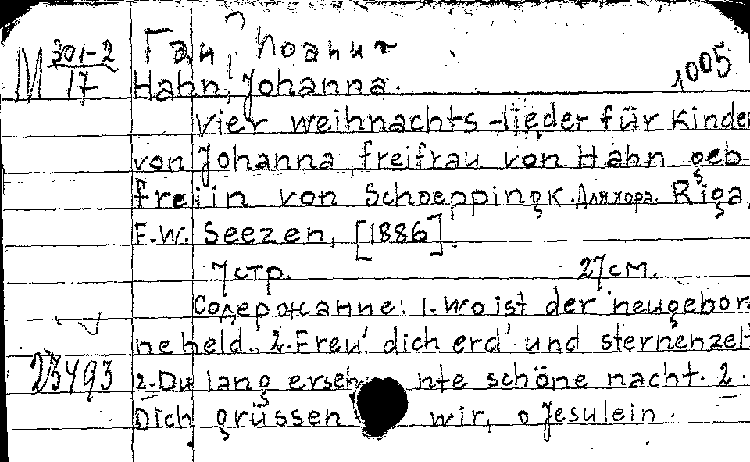 M 301-2
17
Ган, Иоанна
1005
Hahn, Johanna.
Vier weihnachts-lieder für Kinde
von Johanna freifrau von Hahn geb
freiin von Schoeppingk. Для хора. Riga,
E.W. Seezen, [1886].
7 стр. 27 см.
Содержание: 1. Wo ist der neugebor
ne held. 2. Freu' dich erd' und sternenzel
23493
2. Du lang erseh nte schöne nacht. 2.
Dich grüssen wir, o Jesulein.